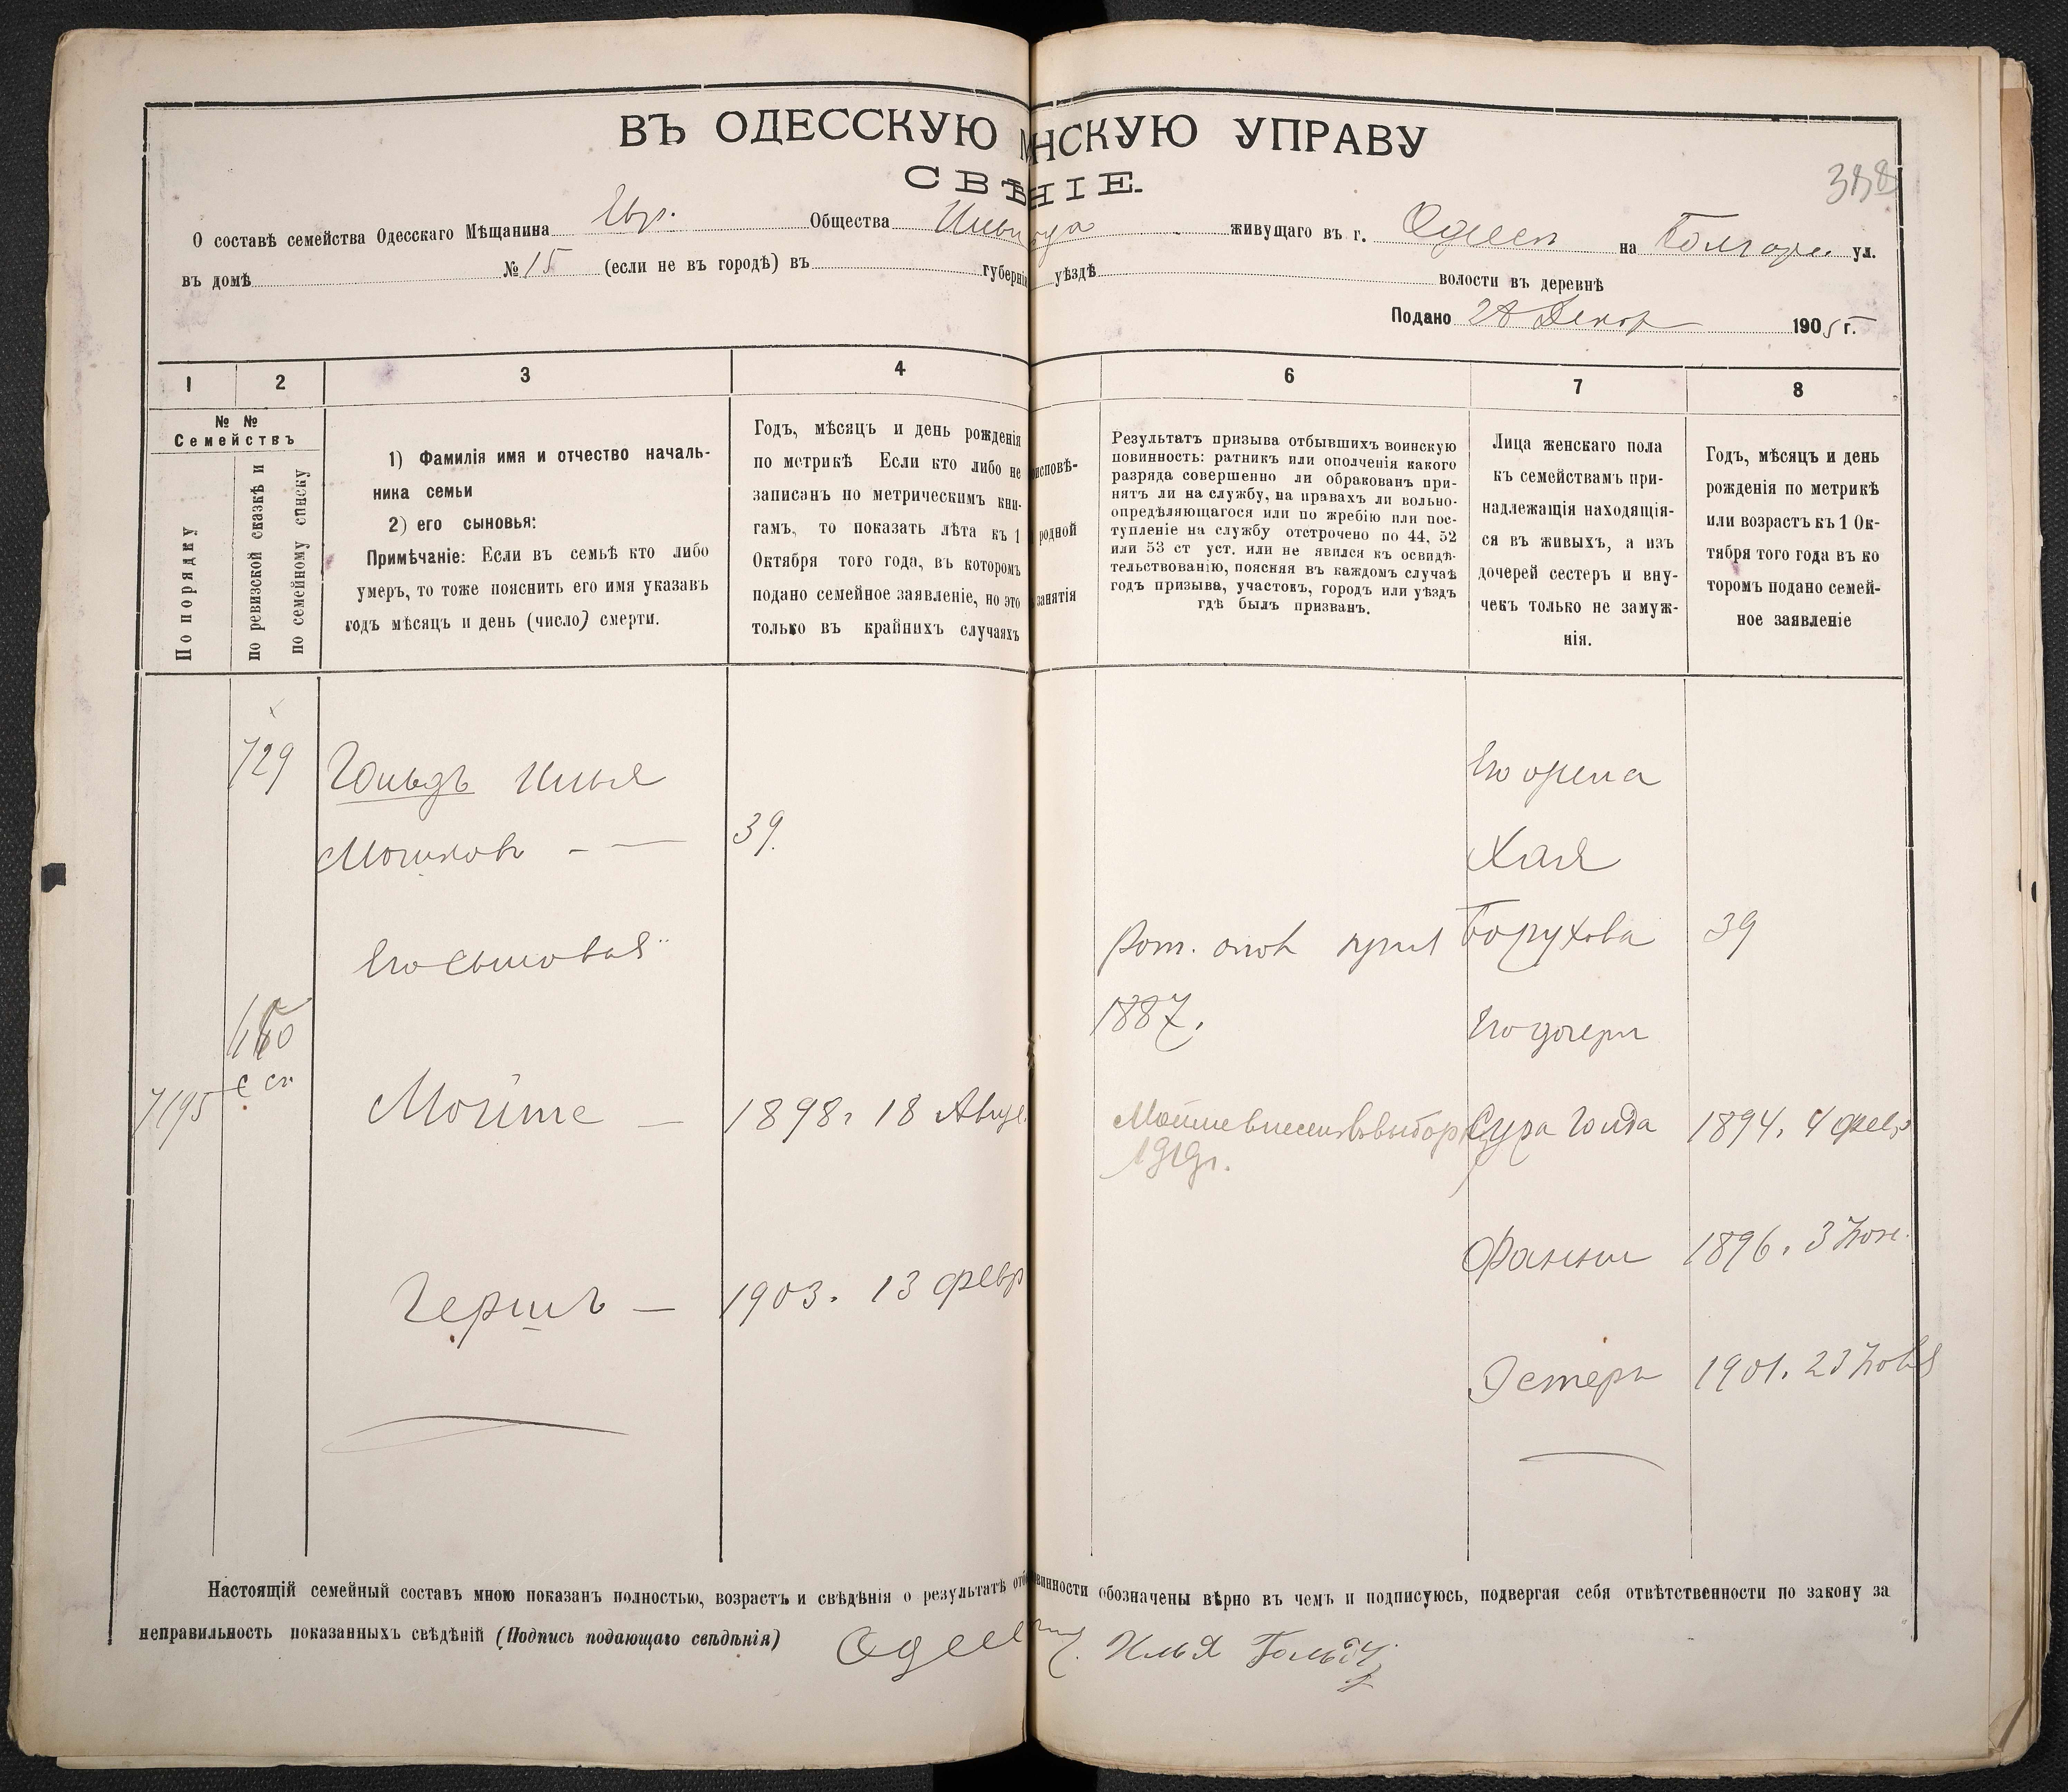 ВЪ ОДЕССКУЮ НСКУЮ УПРАВУ
СВѢНІЕ.
388
О составѣ семейства Одесскаго Мѣщанина Евр. Общества живущаго въ г. Одессѣ на Болгар. ул.
въ домѣ № 15 (если не въ городѣ) въ губерніи уѣздѣ волости въ деревнѣ
Подано 28 Декабр 1905 г.
1 2 3 4 6 7 8
№ №
Семействъ
По порядку
по ревизской сказкѣ и
по семейному списку
1) Фамилія имя и отчество началь-
ника семьи
2) его сыновья:
Примѣчаніе: Если въ семьѣ кто либо
умеръ, то тоже пояснить его имя указавъ
годъ мѣсяцъ и день (число) смерти.
Годъ, мѣсяцъ и день рожденія
по метрикѣ Если кто либо не
записанъ по метрическимъ кни-
гамъ, то показать лѣта къ 1
Октября того года, въ которомъ
подано семейное заявленіе, но это
только въ крайнихъ случаяхъ
исповѣ-
родной
занятія
Результатъ призыва отбывшихъ воинскую
повинность: ратникъ или ополченія какого
разряда совершенно ли обракованъ при-
нятъ ли на службу, на правахъ ли вольно-
опредѣляющагося или по жребію или пос-
тупленіе на службу отстрочено по 44, 52
или 53 ст уст. или не явился къ освидѣ-
тельствованію, поясняя въ каждомъ случаѣ
годъ призыва, участокъ, городъ или уѣздъ
гдѣ былъ призванъ.
Лица женскаго пола
къ семействамъ при-
надлежащія находящія-
ся въ живыхъ, а изъ
дочерей сестеръ и вну-
чекъ только не замуж-
нія.
Годъ, мѣсяцъ и день
рожденія по метрикѣ
или возрастъ къ 1 Ок-
тября того года въ ко
торомъ подано семей-
ное заявленіе
729 Гольдъ Илья
Мошковъ — — 39.
Его жена
Хая
Борухова 39
Его сыновья
Рат. опол приз
1887.
Его дочери
7195
Мойше — 1898 г 18 Авгус.
Мойше внесенъ въ выборъ
1919г.
Сура Голда 1894. 4 февр
Фанни 1896. 3 Ноя.
Гершъ — 1903. 13 февр
Эстеръ 1901. 23 Ноября
Настоящій семейный составъ мною показанъ полностью, возрастъ и свѣдѣнія о результатѣ отб винности обозначены вѣрно въ чемъ и подписуюсь, подвергая себя отвѣтственности по закону за
неправильность показанныхъ свѣдѣній (Подпись подающаго свѣдѣнія) Илья Гольдъ